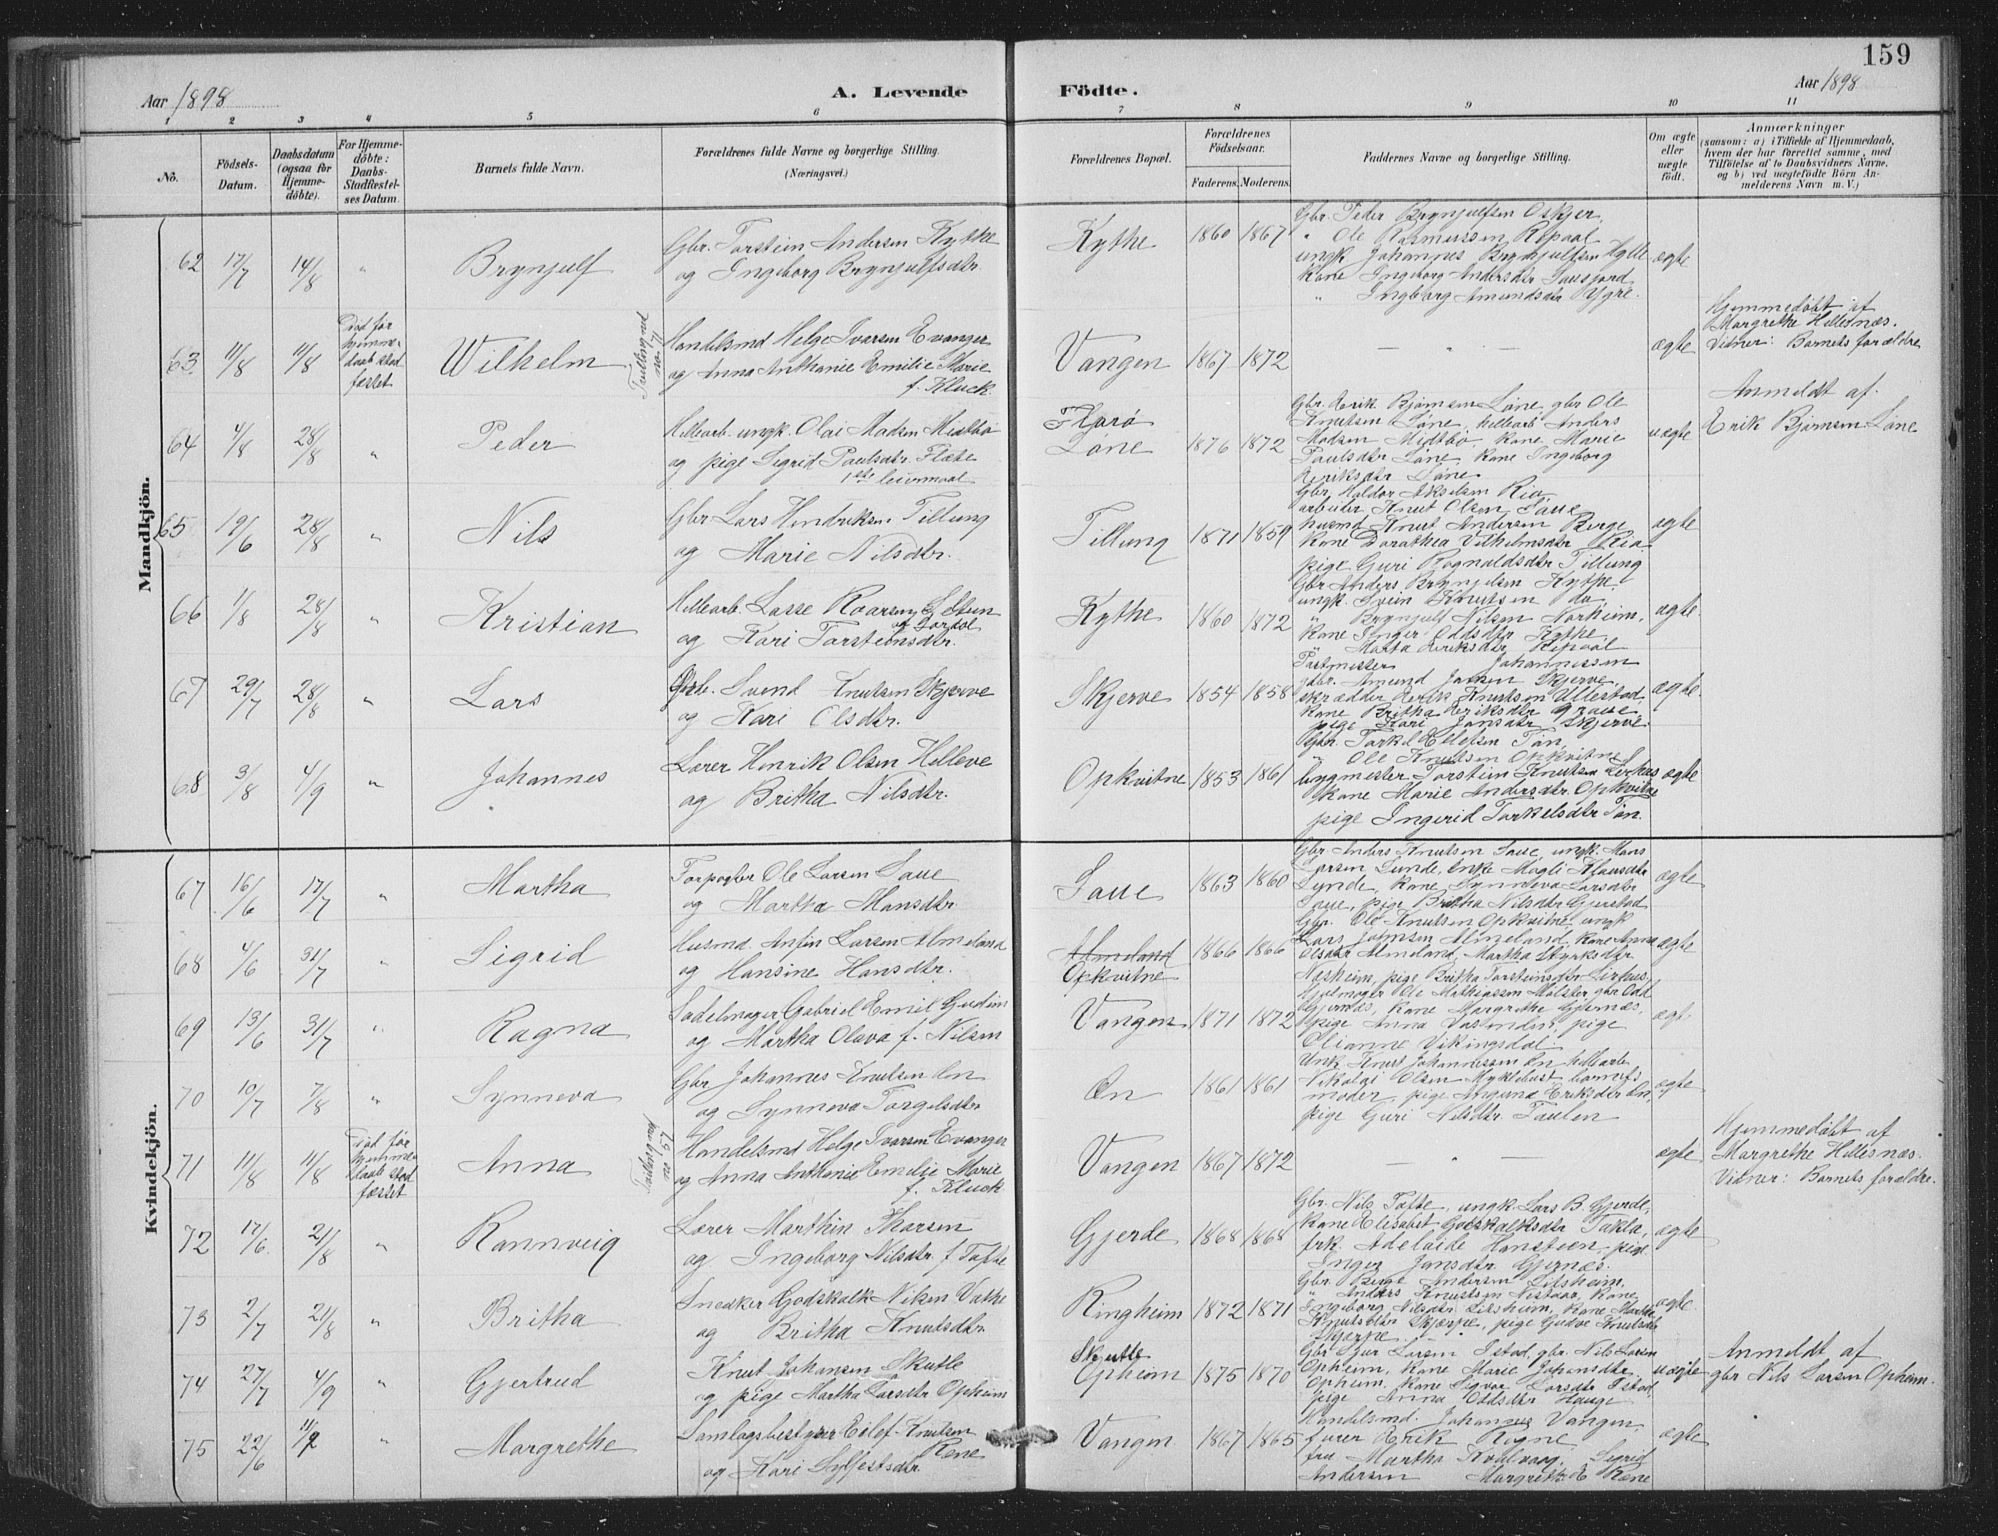 159
Aar 1898
A. Levende
Födte.
Aar 1898
1 2 3 4 5 6 7 8 9 10 11
No.
Födsels-
Datum.
Daabsdatum
(ogsaa for
Hjemme-
döbte).
For Hjemme-
döbte:
Daabs-
Stadfæstel-
ses Datum.
Barnets fulde Navn.
Forældrenes fulde Navne og borgerlige Stilling.
(Næringsvei.)
Forældrenes Bopæl.
Forældrenes
Födselsaar.
Faderens. Moderens.
Faddernes Navne og borgerlige Stilling.
Om ægte
eller
uægte
födt.
Anmærkninger
(saasom: a) i Tilfælde af Hjemmedaab,
hvem der har forrettet samme, med
Tilföielse af to Daabsvidners Navne,
og b) ved uægtefödte Börn An-
melderens Navn m. V.)
Mandkjön.
62 17/7 14/8 " Brynjulf
Gbr. Torstein Andersen Kythe
og Ingeborg Brynjulfsdtr.
Kythe 1860 1867
Gbr. Peder Brynjulfsen Oskjer,
" Ole Rasmussen Repaal
ungk Johannes Brynjulfsen Hylle
Kone Ingeborg Andersdtr Sausjord
" Ingborg Amundsdtr Ygre.
ægte
63 11/8 11/8
Död før
hjemme-
daab stad
fæstet
Wilhelm
Tvillingmd
no. 71
Handelsmd Helge Ivarsen Evanger
og Anna Anthanie Emilie Marie
f. Kluck.
Vangen 1867 1872
— " —
ægte
Hjemmedøbt af
Margrethe Hillesnæs.
Vidner: Barnets forældre
64 4/8 28/8 " Peder
Hellearb. ungk. Olai Madsen Midtbø
og pige Sigrid Paulsdtr. Flæte
1ste leiermaal
Florø
Løne 1876 1872
Gbr. Eerik Bjørnsen Løne, gbr Ole
Knutsen Løne, hellearb Anders
Madsen Midtbø, Kone Marie
Paulsdtr Løne, Kone Ingeborg
Eeriksdtr Løne
uægte
Anmeldt af.
Erik Bjørnsen Løne
65 19/6 28/8 " Nils
Gbr Lars Hendriksen Tillung
og Marie Nilsdtr.
Tillung 1871 1859
Gbr. Haldor Akselsen Rio,
arbeider Knut Olsen Saue
husmd Knut Andersen Berge
Kone Dorathea Vilhelmsdtr Rio
pige Guri Rognaldsdtr Tillung
ægte
66 1/8 28/8 " Kristian
Hellearb. Lasse Roarsen
og Kari Torsteinsdtr.
Kythe 1860 1872
Gbr Anders Brynjulsen Kythe,
ungk. Svein Knutsen do
" Brynjulf Nilsen Norheim,
Kone Inger Oddsdtr Kythe
" Matta Eeriksdtr Repaal
ægte
67 29/7 28/8 " Lars
Svend Knutsen Skjerve
og Kari Olsdtr.
Skjerve 1854 1858
Postmester Johannessen
gbr. Amund Jansen Skjerve,
skrædder Eerik Knutsen Ullestad,
Kone Britha Eeriksdtr Graue
pige Kari Jansdtr Skjerve.
ægte
68 3/8 4/9 " Johannes
Lærer Henrik Olsen Helleve
og Britha Nilsdtr.
Opkvitne 1853 1861
Gbr. Torkel Ellefsen Tøn,
" Ole Knutsen Opkvitne
bygmester Torstein Knutsen Lirhus
Kone Marie Andersdtr Opkvitne
pige Ingerid Torkelsdtr Tøn.
ægte
Kvindekjön.
67 16/6 17/7 " Martha
Torpogbr Ole Larsen Saue
og Martha Monsdtr.
Saue 1863 1860
Gbr Anders Knutsen Saue, ungk. Mons
Larsen Lunde, Enke Magli Klausdtr
Lynde, Kone Synneva Larsdtr
Saue, pige Britha Nilsdtr Gjerstad
ægte
68 4/6 31/7 " Sigrid
Husmd Anfin Larsen Almeland
og Hansine Hansdtr.
Almeland
Opkvitne 1866 1866
Gbr. Ole Knutsen Opkvitne, ungk
Lars Johnsen Almeland, Kone Anna
Olsdtr Almeland, Martha Styrksdtr
Nesheim, pige Britha Torsteinsdtr Lirhus.
ægte
69 13/6 31/7 " Ragna
Sadelmager Gabriel Emil Gudim
og Martha Olava f. Nilsen
Vangen 1871 1872
Hjulmager Ole Mathiassen Mølster, gbr Odd
Gjernæs, Kone Margrethe Gjernæs,
pige Anna Vasenden, pige
Olianne Vikingsdal
ægt.
70 10/7 7/8 " Synneva
Gbr Johannes Knutsen Øn
og Synneva Torgelsdtr
Øn 1861 1861
Unk Knut Johannessen Øn, hellearb
Nikolai Olsen Myklebust, barnets
moder, pige Anguna Eriksdtr Øn,
pige Guri Nilsdtr Taulen
ægte
71 11/8 11/8
Død før
hjemme-
daab stad
fæstet
Anna
Tvilling md
no 63
Handelsmd Helge Ivarsen Evanger
og Anna Anthanie Emilie Marie
f. Kluck
Vangen 1867 1872
— " —
ægte
Hjemmedøbt af
Margrethe Hillesnæs.
Vidner: Barnets forældre.
72 17/6. 21/8 " Rannveig
Lærer Marthin Ivarsen
og Ingeborg Nilsdtr f Tøfte
Gjerde 1868 1868
Gbr. Nils Tøfte, ungk. Lars B. Gjerde,
Kone Elisabet Godskalksdtr Takla,
frk. Adelaide Hansteen, pige
Inger Jansdtr Gjernæs.
ægte
73 2/7 21/8 " Britha
Snedker Godskalk Nilsen Væthe
og Britha Knutsdtr.
Ringheim 1872 1871
Gbr. Berge Andersen Litsheim.
" Anders Knutsen Nistaas, Kone
Ingeborg Nilsdtr Litsheim, Kone Martha
Knutsdtr Skjerpe, pige Gudve Knutsdtr
Skjerpe.
ægte
74 27/7 4/9 " Gjertrud
Knut Johansen Skutle
og pige Martha Larsdtr Opheim
Skutle
Opheim 1875 1870
Gbr Sjur Larsen Istad, gbr Nils Larsen
Opheim, Kone Marie Johansdtr
Opheim, Kone Sigvor Larsdtr Istad,
pige Anna Oddsdtr Hauge
uægte
Anmeldt af
gbr Nils Larsen Opheim.
75 22/6 11/9 " Margrethe
Samlagsbestyrer Eilef Knutsen
Rene
og Kari Sylfestsdtr
Vangen 1867 1865
Handelsmd. Johannes Vangen,
furer Eerik Rogne,
fru Martha Kvalvaag, Sigrid
Andersen Margrethe E Rene
ægte